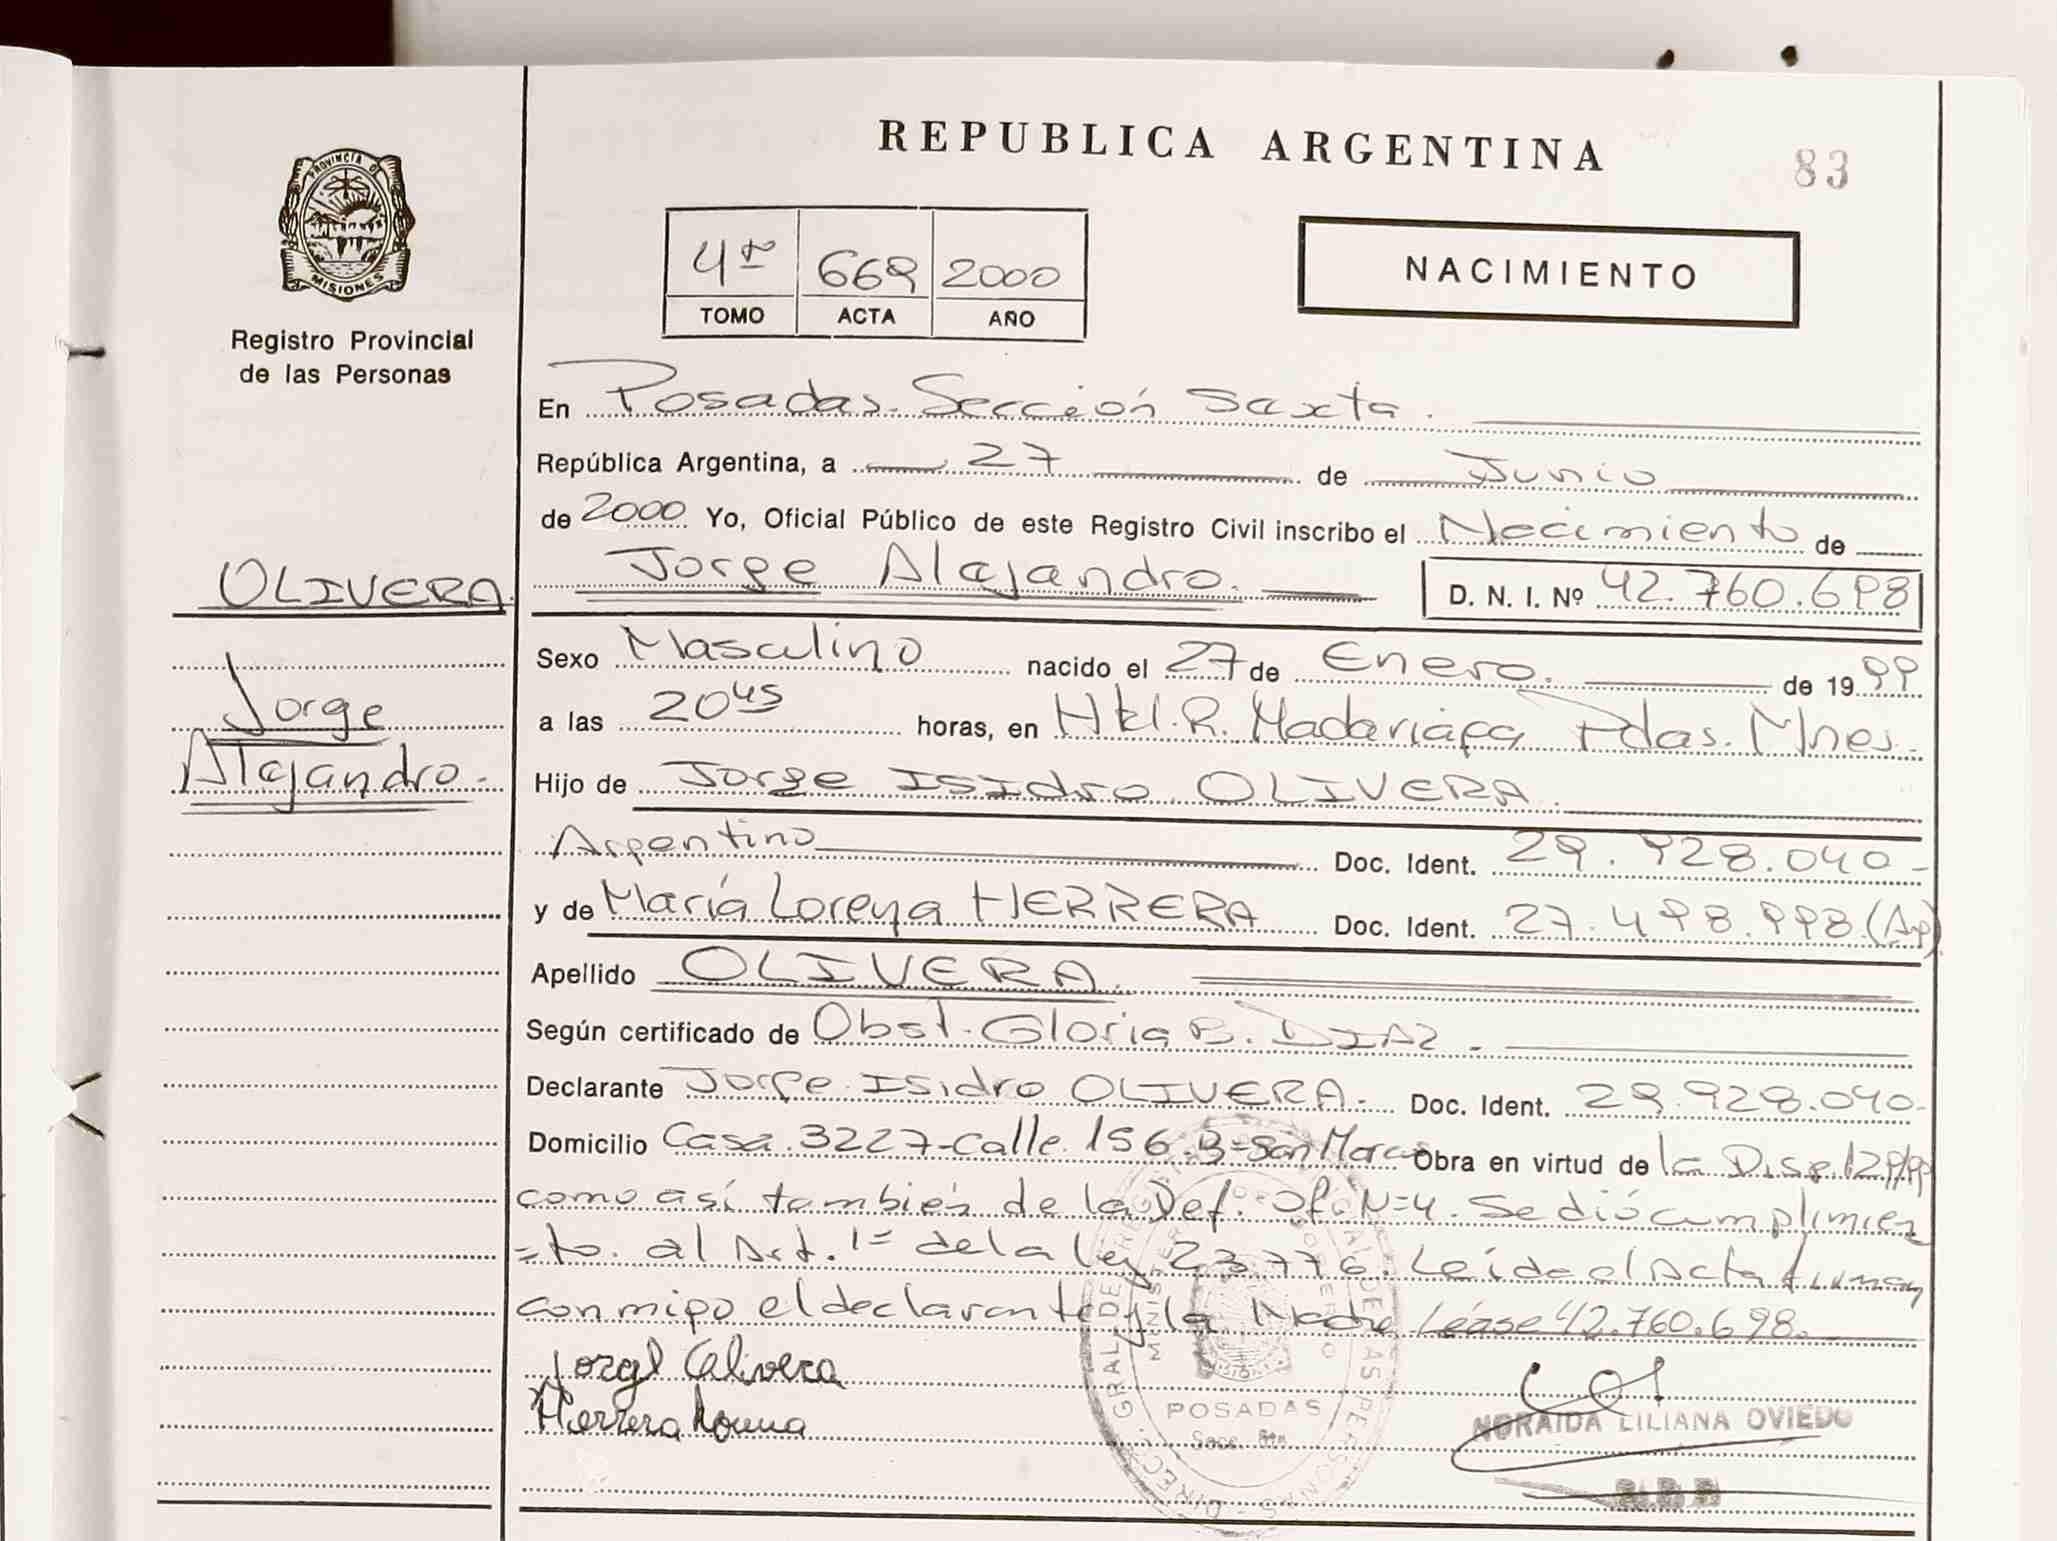 REPUBLICA ARGENTINA
83
PROVINCIA DE
MISIONES
Registro Provincial
de las Personas
4to 669 2000
TOMO ACTA AÑO
NACIMIENTO
En Posadas. Sección Sexta.
República Argentina, a 27 de Junio
de 2000 Yo, Oficial Público de este Registro Civil inscribo el Nacimiento de
OLIVERA
Jorge Alejandro. D. N. I. Nº 42.760.698
Sexo Masculino nacido el 27 de Enero. de 1999
Jorge
a las 20 45 horas, en Htal. R. Madariaga Pdas. Mnes.
Alejandro.
Hijo de Jorge Isidro OLIVERA.
Argentino Doc. Ident. 29.928.040-
y de María Lorena HERRERA Doc. Ident. 27.498.998 (Ap)
Apellido OLIVERA.
Según certificado de Obst. Gloria B. DIAZ.
Declarante Jorge Isidro OLIVERA. Doc. Ident. 29.928.040-
Domicilio Casa 3227-Calle 156-B-San Marcos Obra en virtud de la Disp. 129/99
como así también de la Def. Of. N=4. Se dió cumplimien
=to. al Art. 1= de la ley 23.776. Leída el Acta firman
conmigo el declarante y la Madre Léase 42.760.698.
Jorge Olivera
Herrera Lorena
POSADAS
Secc. 6ta.
NORAIDA LILIANA OVIEDO